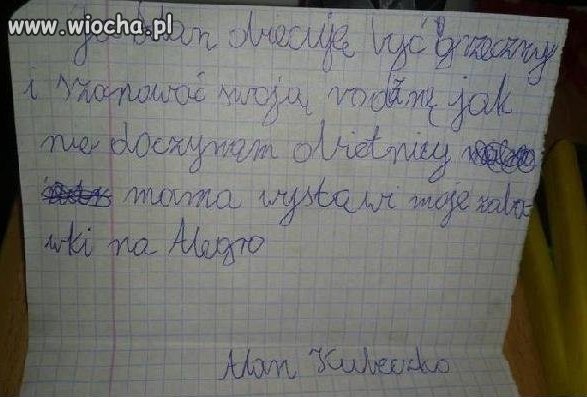 www.wiocha.pl
Ja Alan obiecuję być grzeczny
i szanować swoją rodźinę jak
nie doczynam obietnicy
mama wystawi moje zaba-
wki na Alegro
Alan Kubeczko